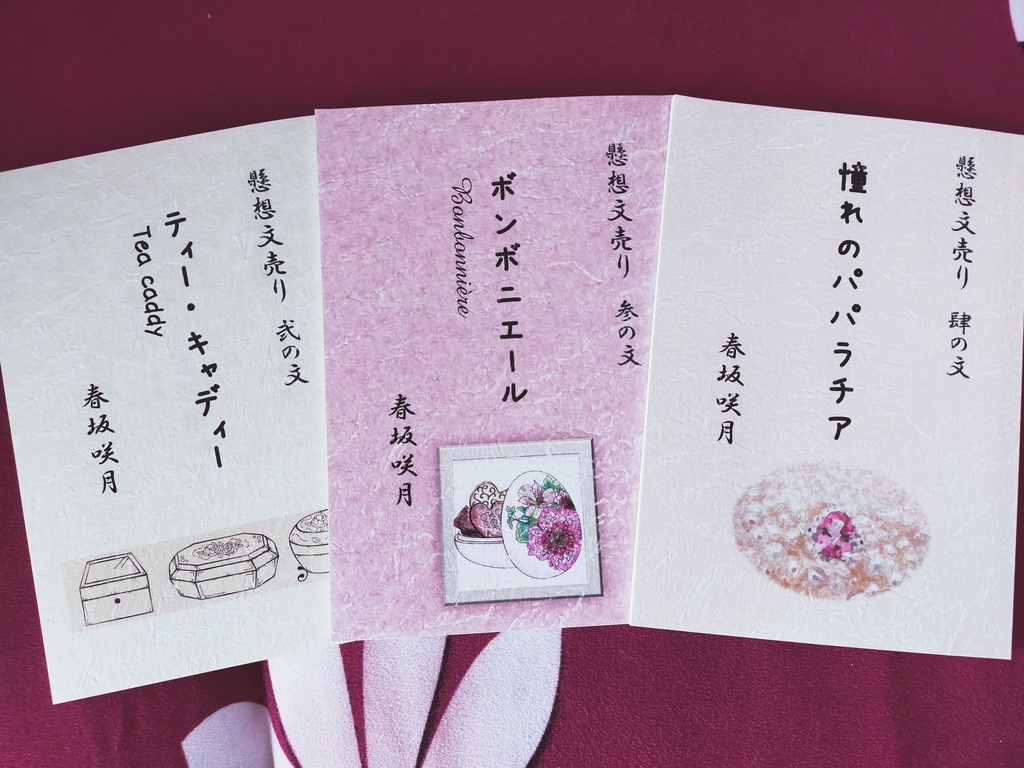 懸想文売り 弐の文
ティー・キャディー
Tea caddy
春坂咲月
懸想文売り 参の文
ボンボニエール
Bonbonnière
春坂咲月
懸想文売り 肆の文
憧れのパパラチア
春坂咲月